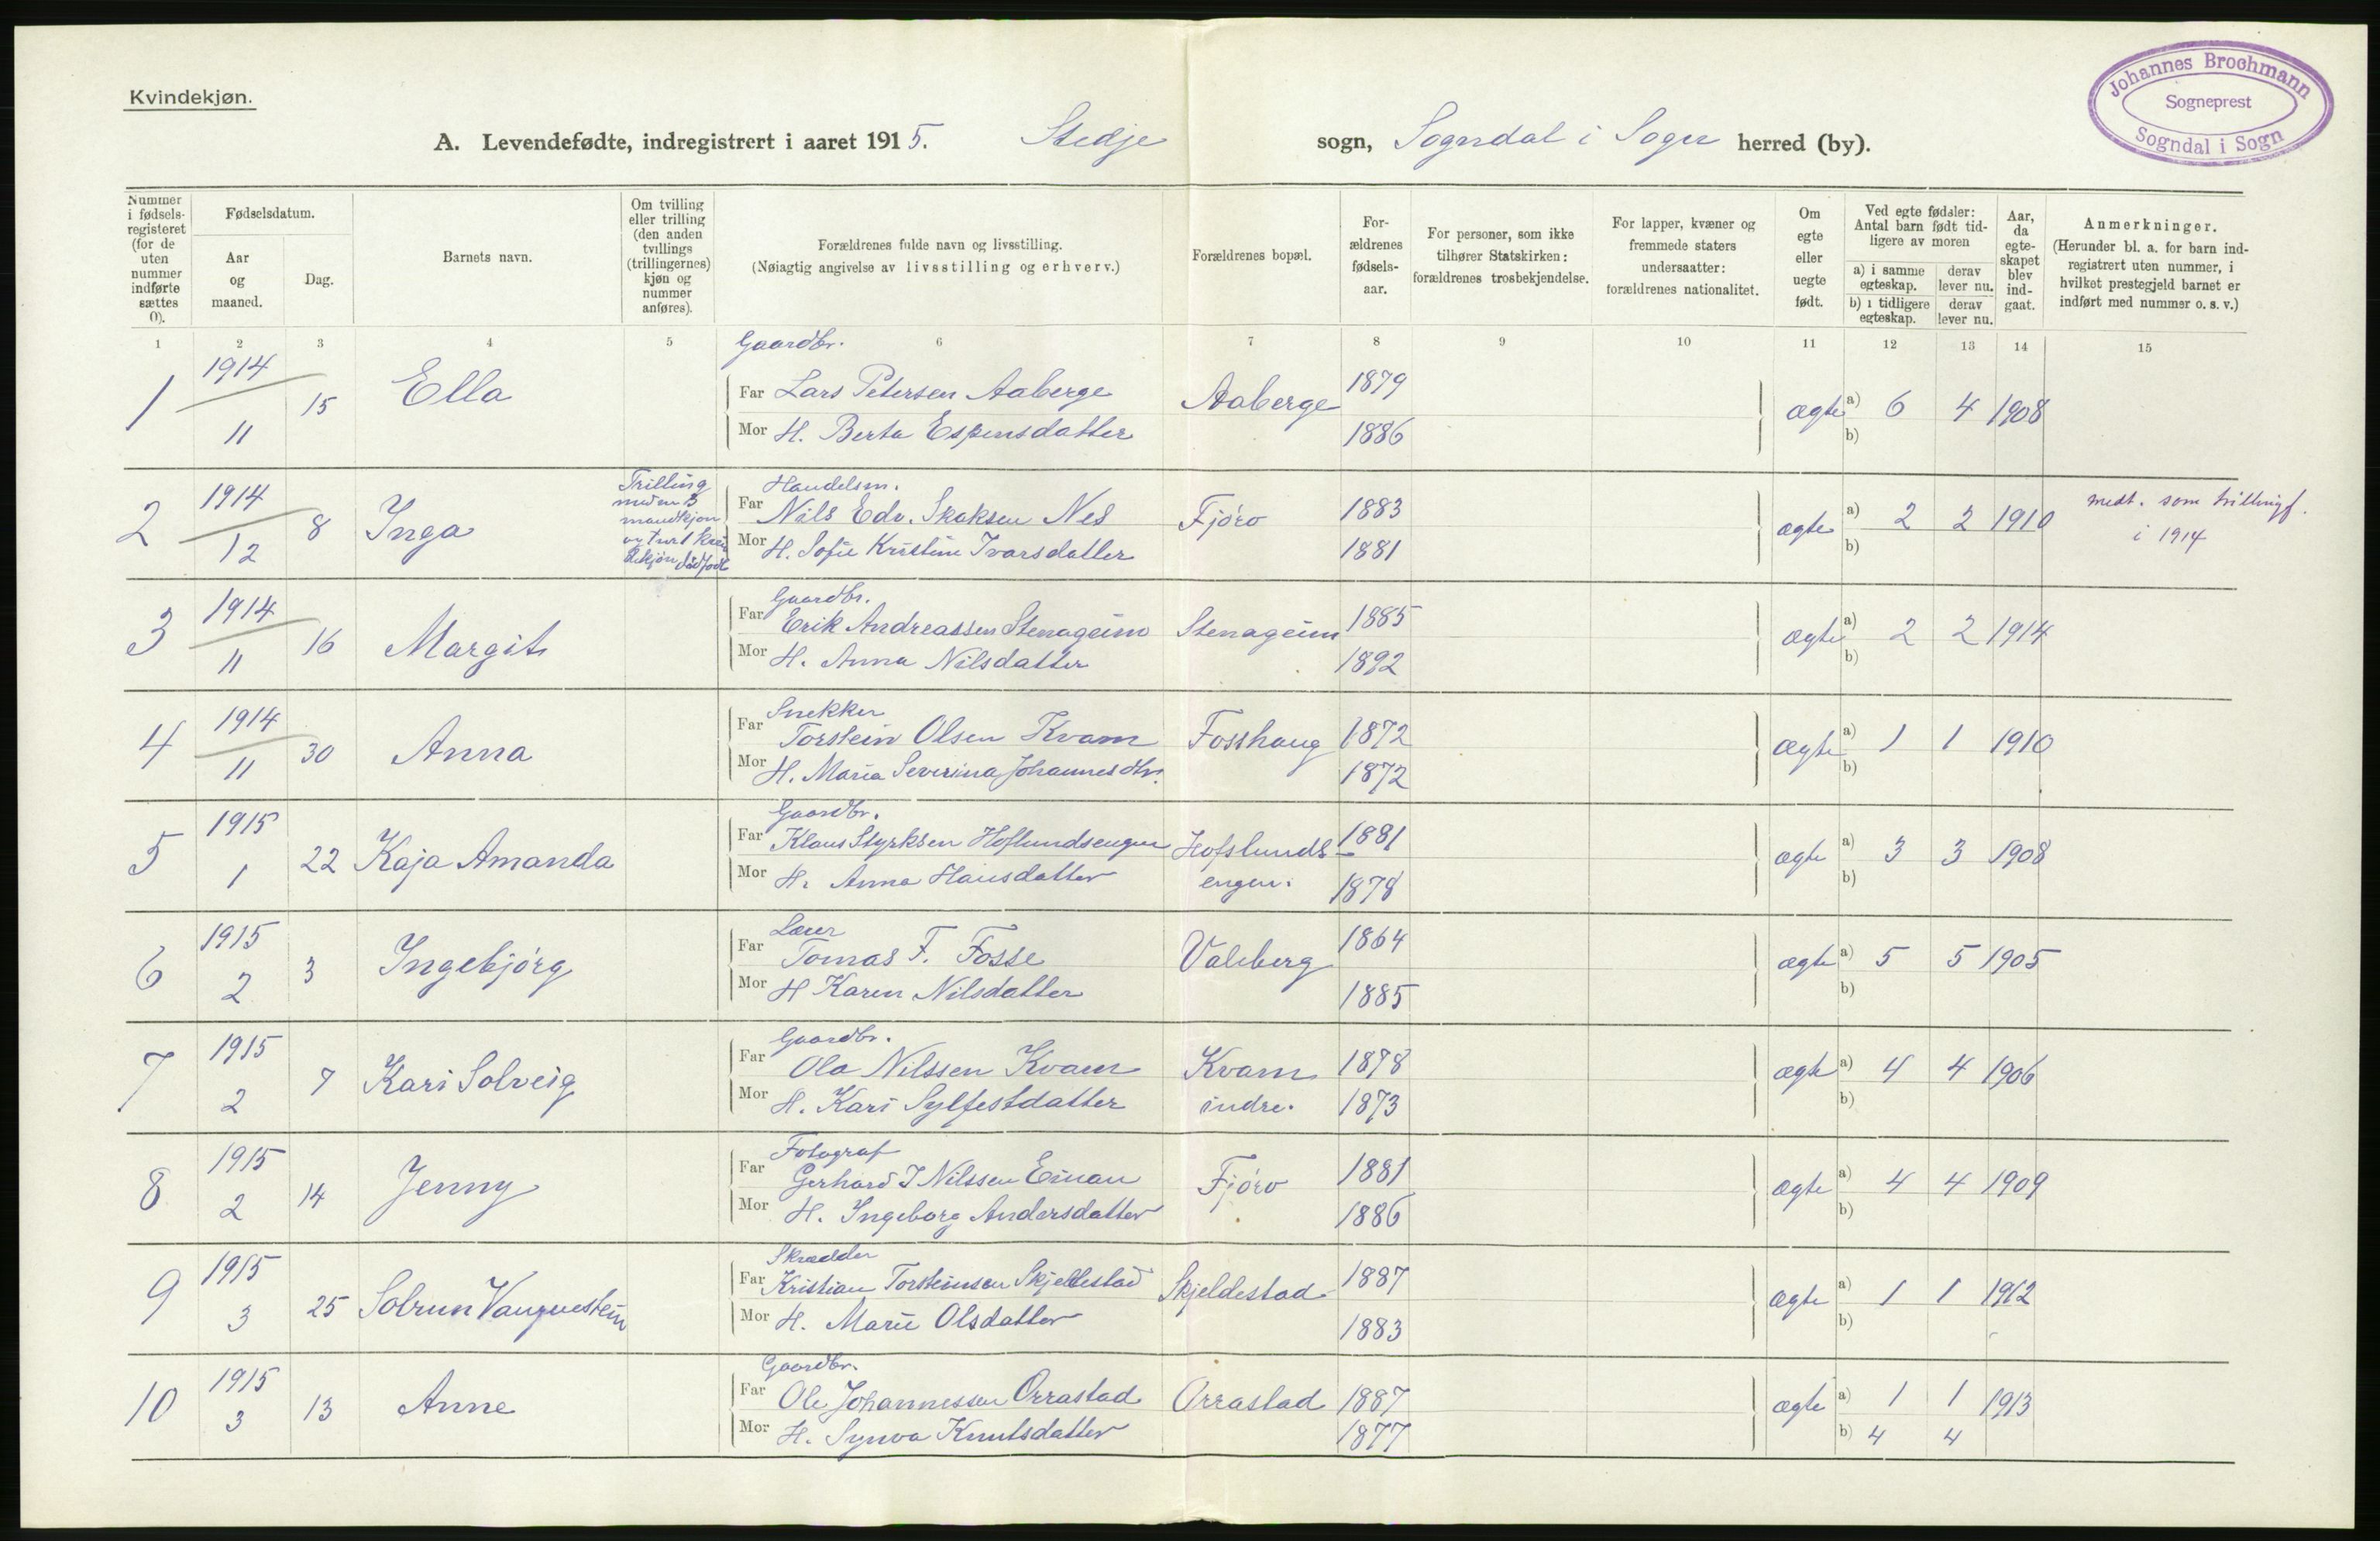 Kvindekjøn.
Johannes Brochmann
Sogneprest
Sogndal i Sogn
A. Levendefødte, indregistrert i aaret 1915. Stedje sogn, Sogndal i Sogn herred (by).
Nummer i fødsels-registeret (for de uten nummer indførte sættes 0).
Fødselsdatum.
Aar og maaned.
Dag.
Barnets navn.
Om tvilling eller trilling (den anden tvillings (trillingernes) kjøn og nummer anføres).
Forældrenes fulde navn og livsstilling.
(Nøiagtig angivelse av livsstilling og erhverv.)
Forældrenes bopæl.
For-ældrenes fødsels-aar.
For personer, som ikke tilhører Statskirken: forældrenes trosbekjendelse.
For lapper, kvæner og fremmede staters undersaatter: forældrenes nationalitet.
Om egte eller uegte født.
Ved egte fødsler: Antal barn født tid-ligere av moren
a) i samme egteskap.
derav lever nu.
b) i tidligere egteskap.
derav lever nu.
Aar, da egte-skapet blev ind-gaat.
Anmerkninger.
(Herunder bl. a. for barn ind-registrert uten nummer, i hvilket prestegjeld barnet er indført med nummer o. s. v.)
1 2 3 4 5 6 7 8 9 10 11 12 13 14 15
Gaardbr.
1 1914 11 15 Ella Far Lars Petersen Aaberge Aaberge 1879 ægte a) 6 4 1908
Mor H. Berta Espensdatter 1886 b)
Trilling
mandkjøn
dødfødt
Handelsm.
2 1914 12 8 Inga Far Nils Edv. Isaksen Nes Fjøro 1883 ægte a) 2 2 1910 medt. som trillingf. i 1914
Mor H. Sofie Kristine Ivarsdatter 1881 b)
Gaardbr.
3 1914 11 16 Margit Far Erik Andreassen Stenageim Stenageim 1885 ægte a) 2 2 1914
Mor H. Anna Nilsdatter 1892 b)
Snekker
4 1914 11 30 Anna Far Torstein Olsen Kvam Fosshaug 1872 ægte a) 1 1 1910
Mor H. Maria Severina Johannesdtr. 1872 b)
Gaardbr.
5 1915 1 22 Kaja Amanda Far Klaus Styrksen Hofslundsengen Hofslunds- 1881 ægte a) 3 3 1908
Mor H. Anna Hansdatter engen. 1878 b)
Lærer
6 1915 2 3 Ingebjörg Far Tomas F. Fosse Valeberg 1864 ægte a) 5 5 1905
Mor H Karen Nilsdatter 1885 b)
Gaardbr.
7 1915 2 7 Kari Solveig Far Ola Nilssen Kvam Kvam 1878 ægte a) 4 4 1906
Mor H. Kari Sylfestdatter indre. 1873 b)
Fotograf
8 1915 2 14 Jenny Far Gerhard I Nilssen Einan Fjøro 1881 ægte a) 4 4 1909
Mor H. Ingeborg Andersdatter 1886 b)
Skrædder
9 1915 3 25 Solrun Vangnestein Far Kristian Torsteinsen Skjeldestad Skjeldestad 1887 ægte a) 1 1 1912
Mor H. Marie Olsdatter 1883 b)
Gaardbr.
10 1915 3 13 Anne Far Ole Johannessen Orrastad Orrastad 1887 ægte a) 1 1 1913
Mor H. Synva Knutsdatter 1877 b) 4 4